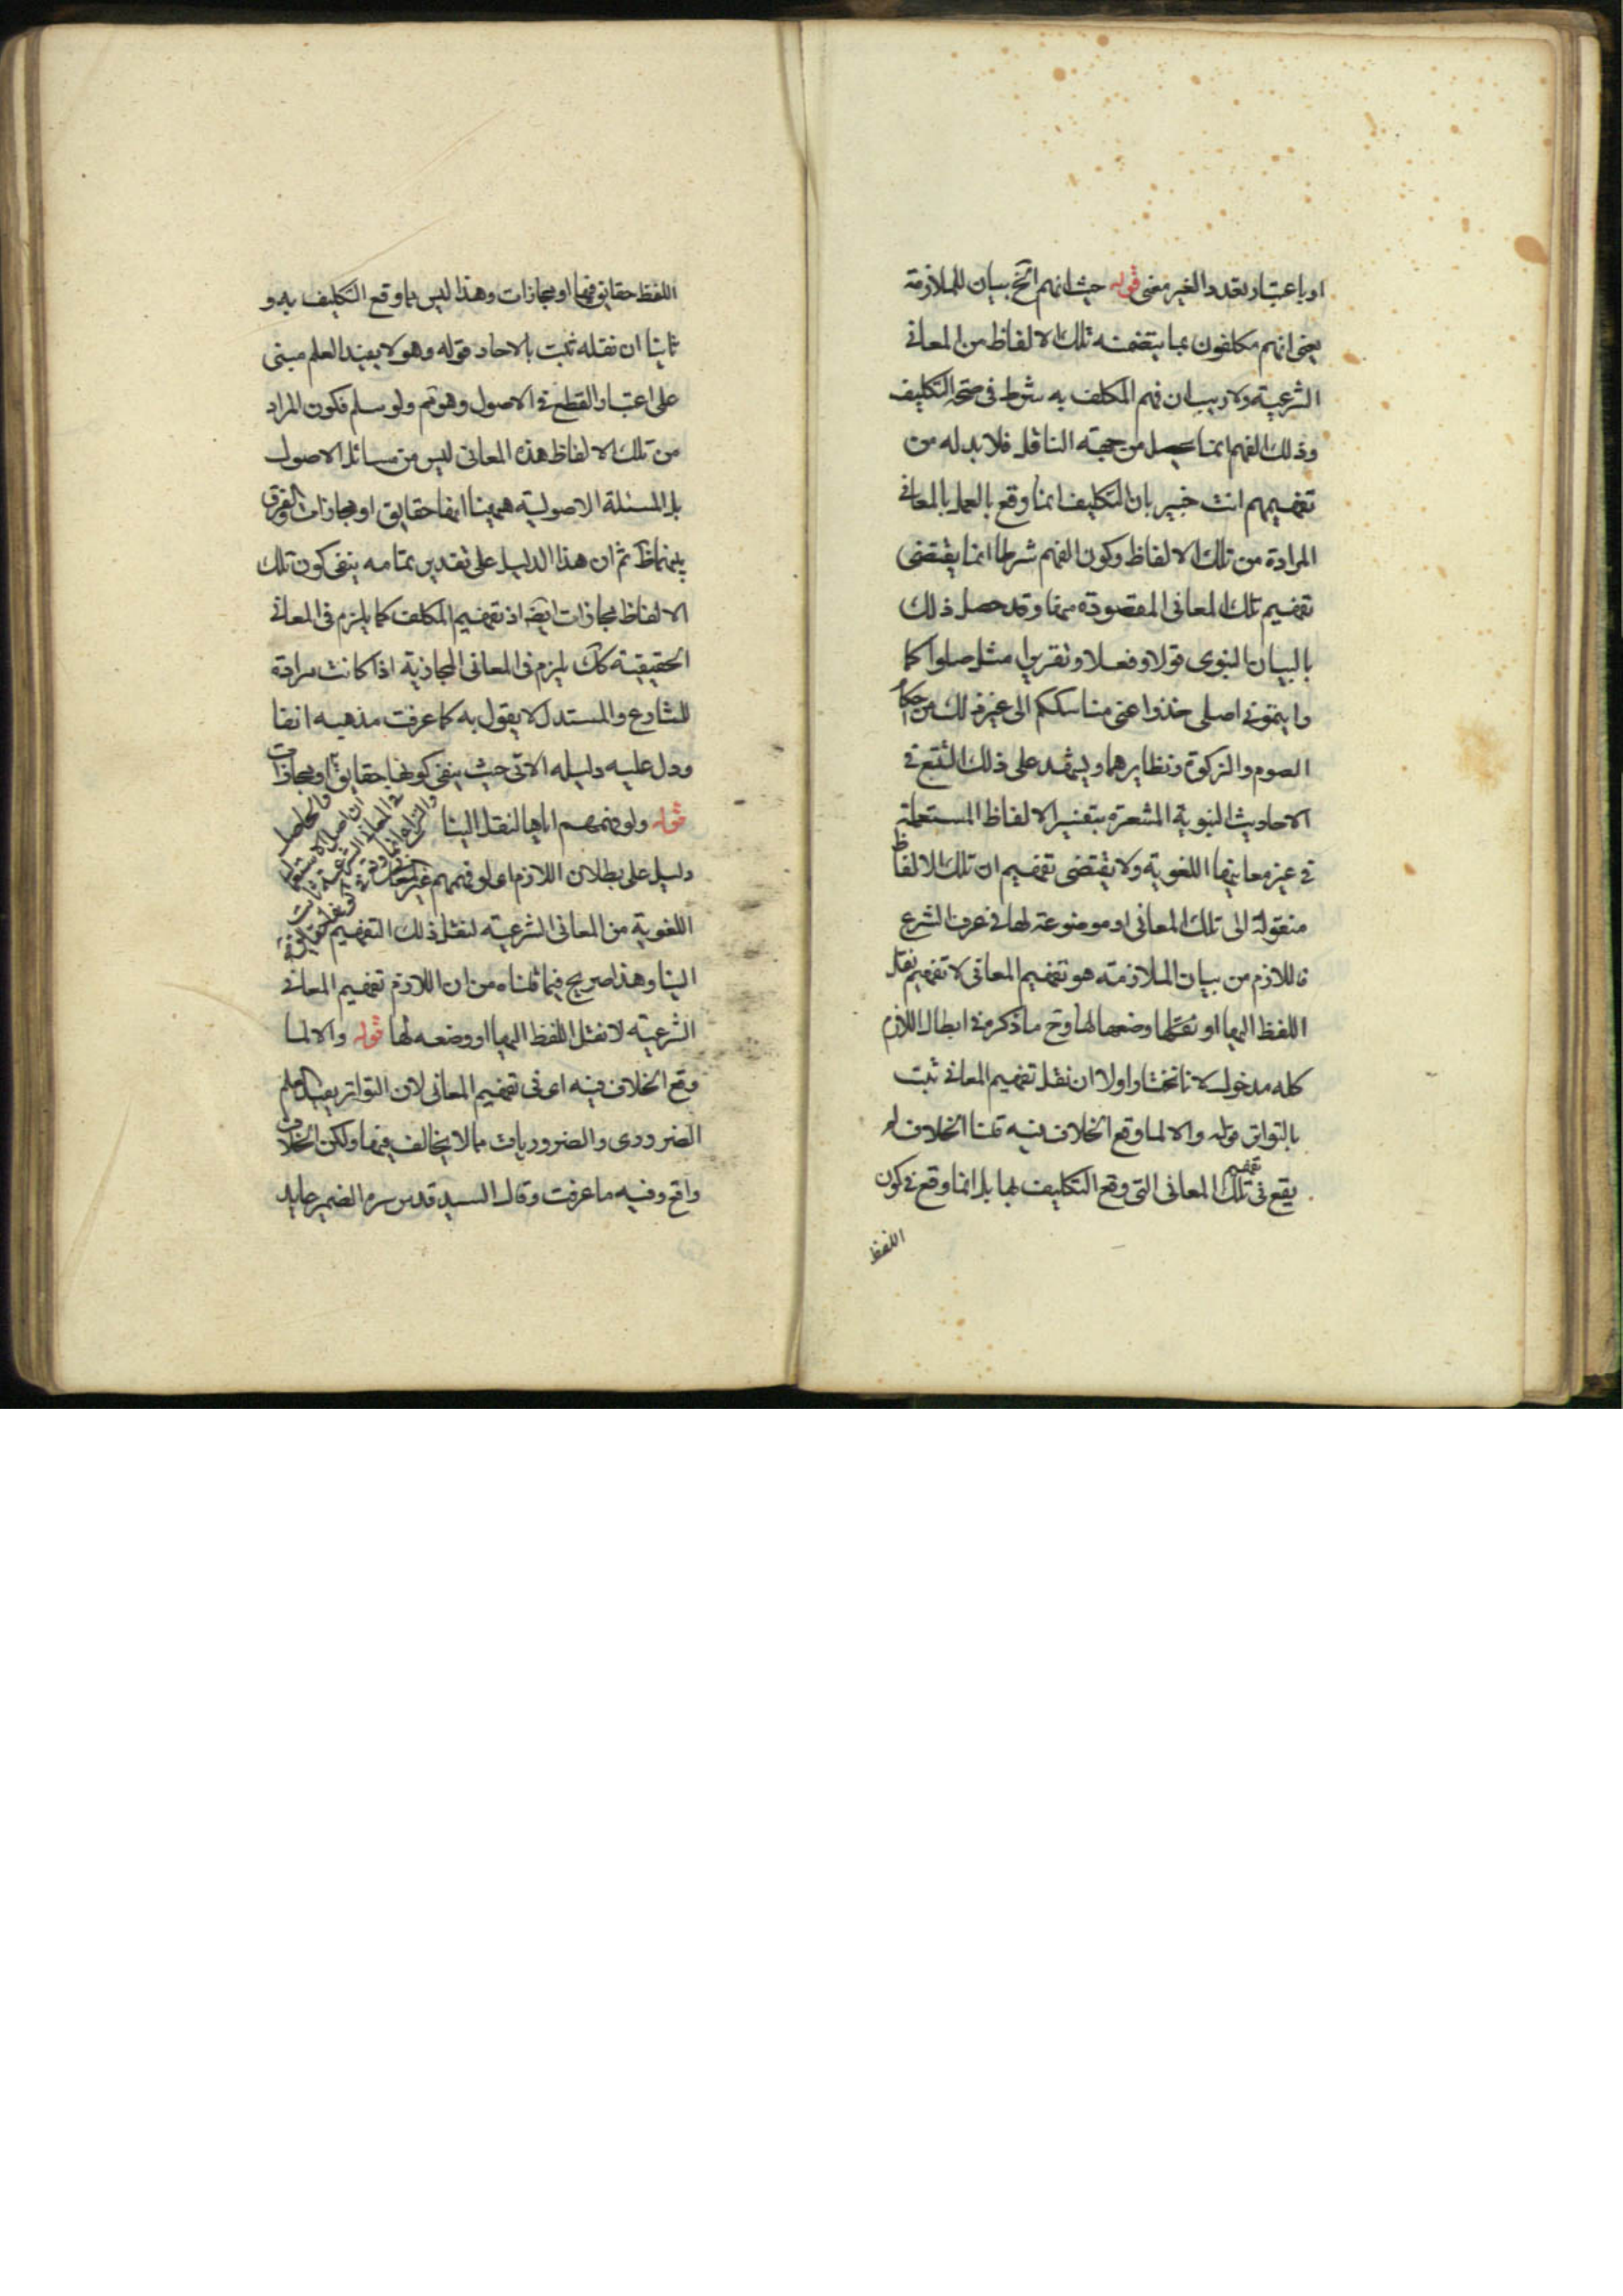 او باعتبار تعدد الغير معنى قوله حيث انهم الخ بيان للملازمة
يعنى انهم مكلفون بما يتضمنه تلك الالفاظ من المعانى
الشرعية ولا ريب ان فهم المكلف به شرط فى صحة التكليف
وذلك الفهم انما يحصل من جهة الناقل فلا بد له من
تفهيمهم انت خبير بان التكليف انما وقع بالعمل بالمعانى
المرادة من تلك الالفاظ وكون الفهم شرطا انما يقتضى
تفهيم تلك المعانى المقصودة منها وقد حصل ذلك
بالبيان النبوى قولا وفعلا وتقريرا مثل صلوا كما
رايتمونى اصلى خذوا عنى مناسككم الى غير ذلك من احكام
الصوم والزكوة ونظايرهما ويشهد على ذلك التتبع فى
الاحاديث النبوية المشعرة بتفسير الالفاظ المستعملة
فى غير معانيها اللغوية ولا يقتضى تفهيم ان تلك الالفاظ
منقولة الى تلك المعانى او موضوعة لها فى عرف الشرع
فاللازم من بيان الملازمة هو تفهيم المعانى لا تفهيم نقل
اللفظ اليها او وضعها لها وح ما ذكر من ابطال اللازم
كله مدخول لانا نختار اولا ان نقل تفهيم المعانى ثبت
بالتواتر قوله والا لما وقع الخلاف فيه قلنا الخلاف لم
يقع فى تفهيم تلك المعانى التى وقع التكليف بها بل انما وقع فى كون
اللفظ
اللفظ حقايق فيها او مجازات وهذا ليس مما وقع التكليف به و
ثانيا ان نقله ثبت بالاحاد قوله وهو لا يفيد العلم مبنى
على اعتبار القطع فى الاصول وهو مم ولو سلم فكون المراد
من تلك الالفاظ هذه المعانى ليس من مسائل الاصول
بل المسئلة الاصولية ههنا انها حقايق او مجازات والفرق
بينهما ظ ثم ان هذا الدليل على تقدير تمامه ينفى كون تلك
الالفاظ مجازات ايضا اذ تفهيم المكلف كما يلزم فى المعانى
الحقيقية كك يلزم فى المعانى المجازية اذا كانت مرادة
للشارع والمستدل لا يقول به كما عرفت مذهبه انفا
ودل عليه دليله الاتى حيث ينفى كونها حقايق او مجازات
قوله ولو فهمهم اياها لنقل الينا
دليل على بطلان اللازم اى لو فهمهم غير المعانى
اللغوية من المعانى الشرعية لنقل ذلك التفهيم
الينا وهذا صريح فيما قلناه من ان اللازم تفهيم المعانى
الشرعية لا نقل اللفظ اليها او وضعه لها قوله والا لما
وقع الخلاف فيه اى فى تفهيم المعانى لان التواتر يفيد العلم
الضرورى والضروريات مما لا يخالف فيها ولكن الخلاف
واقع وفيه ما عرفت وقال السيد قدس سره الضمير عايد
والحاصل
ان اصل الاستعمال
فى المعانى الشرعية ثابت
والنزاع انما وقع فى